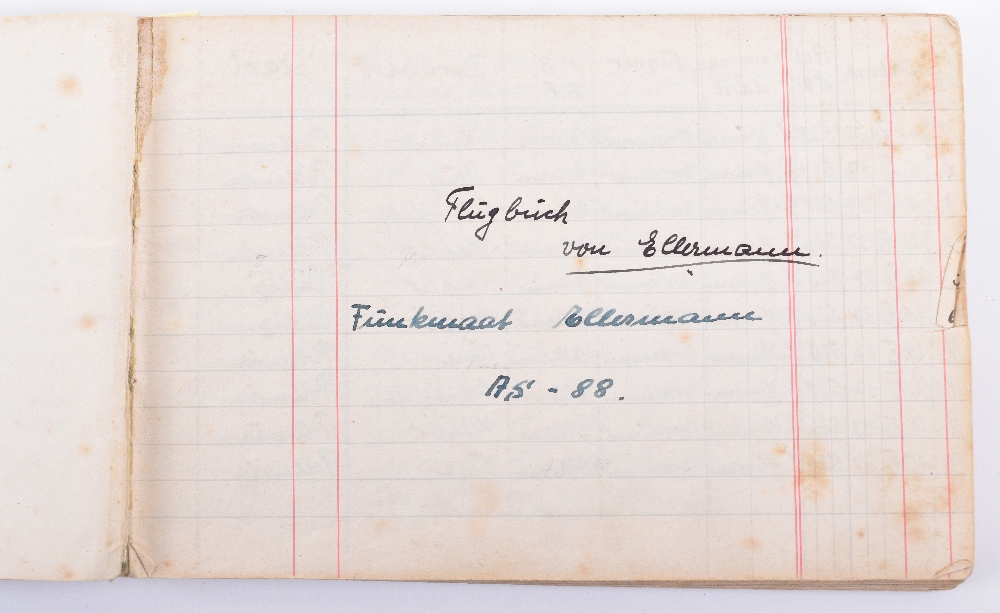 Flugbuch
von Ellermann.
Funkmaat Ellermann
AS - 88.